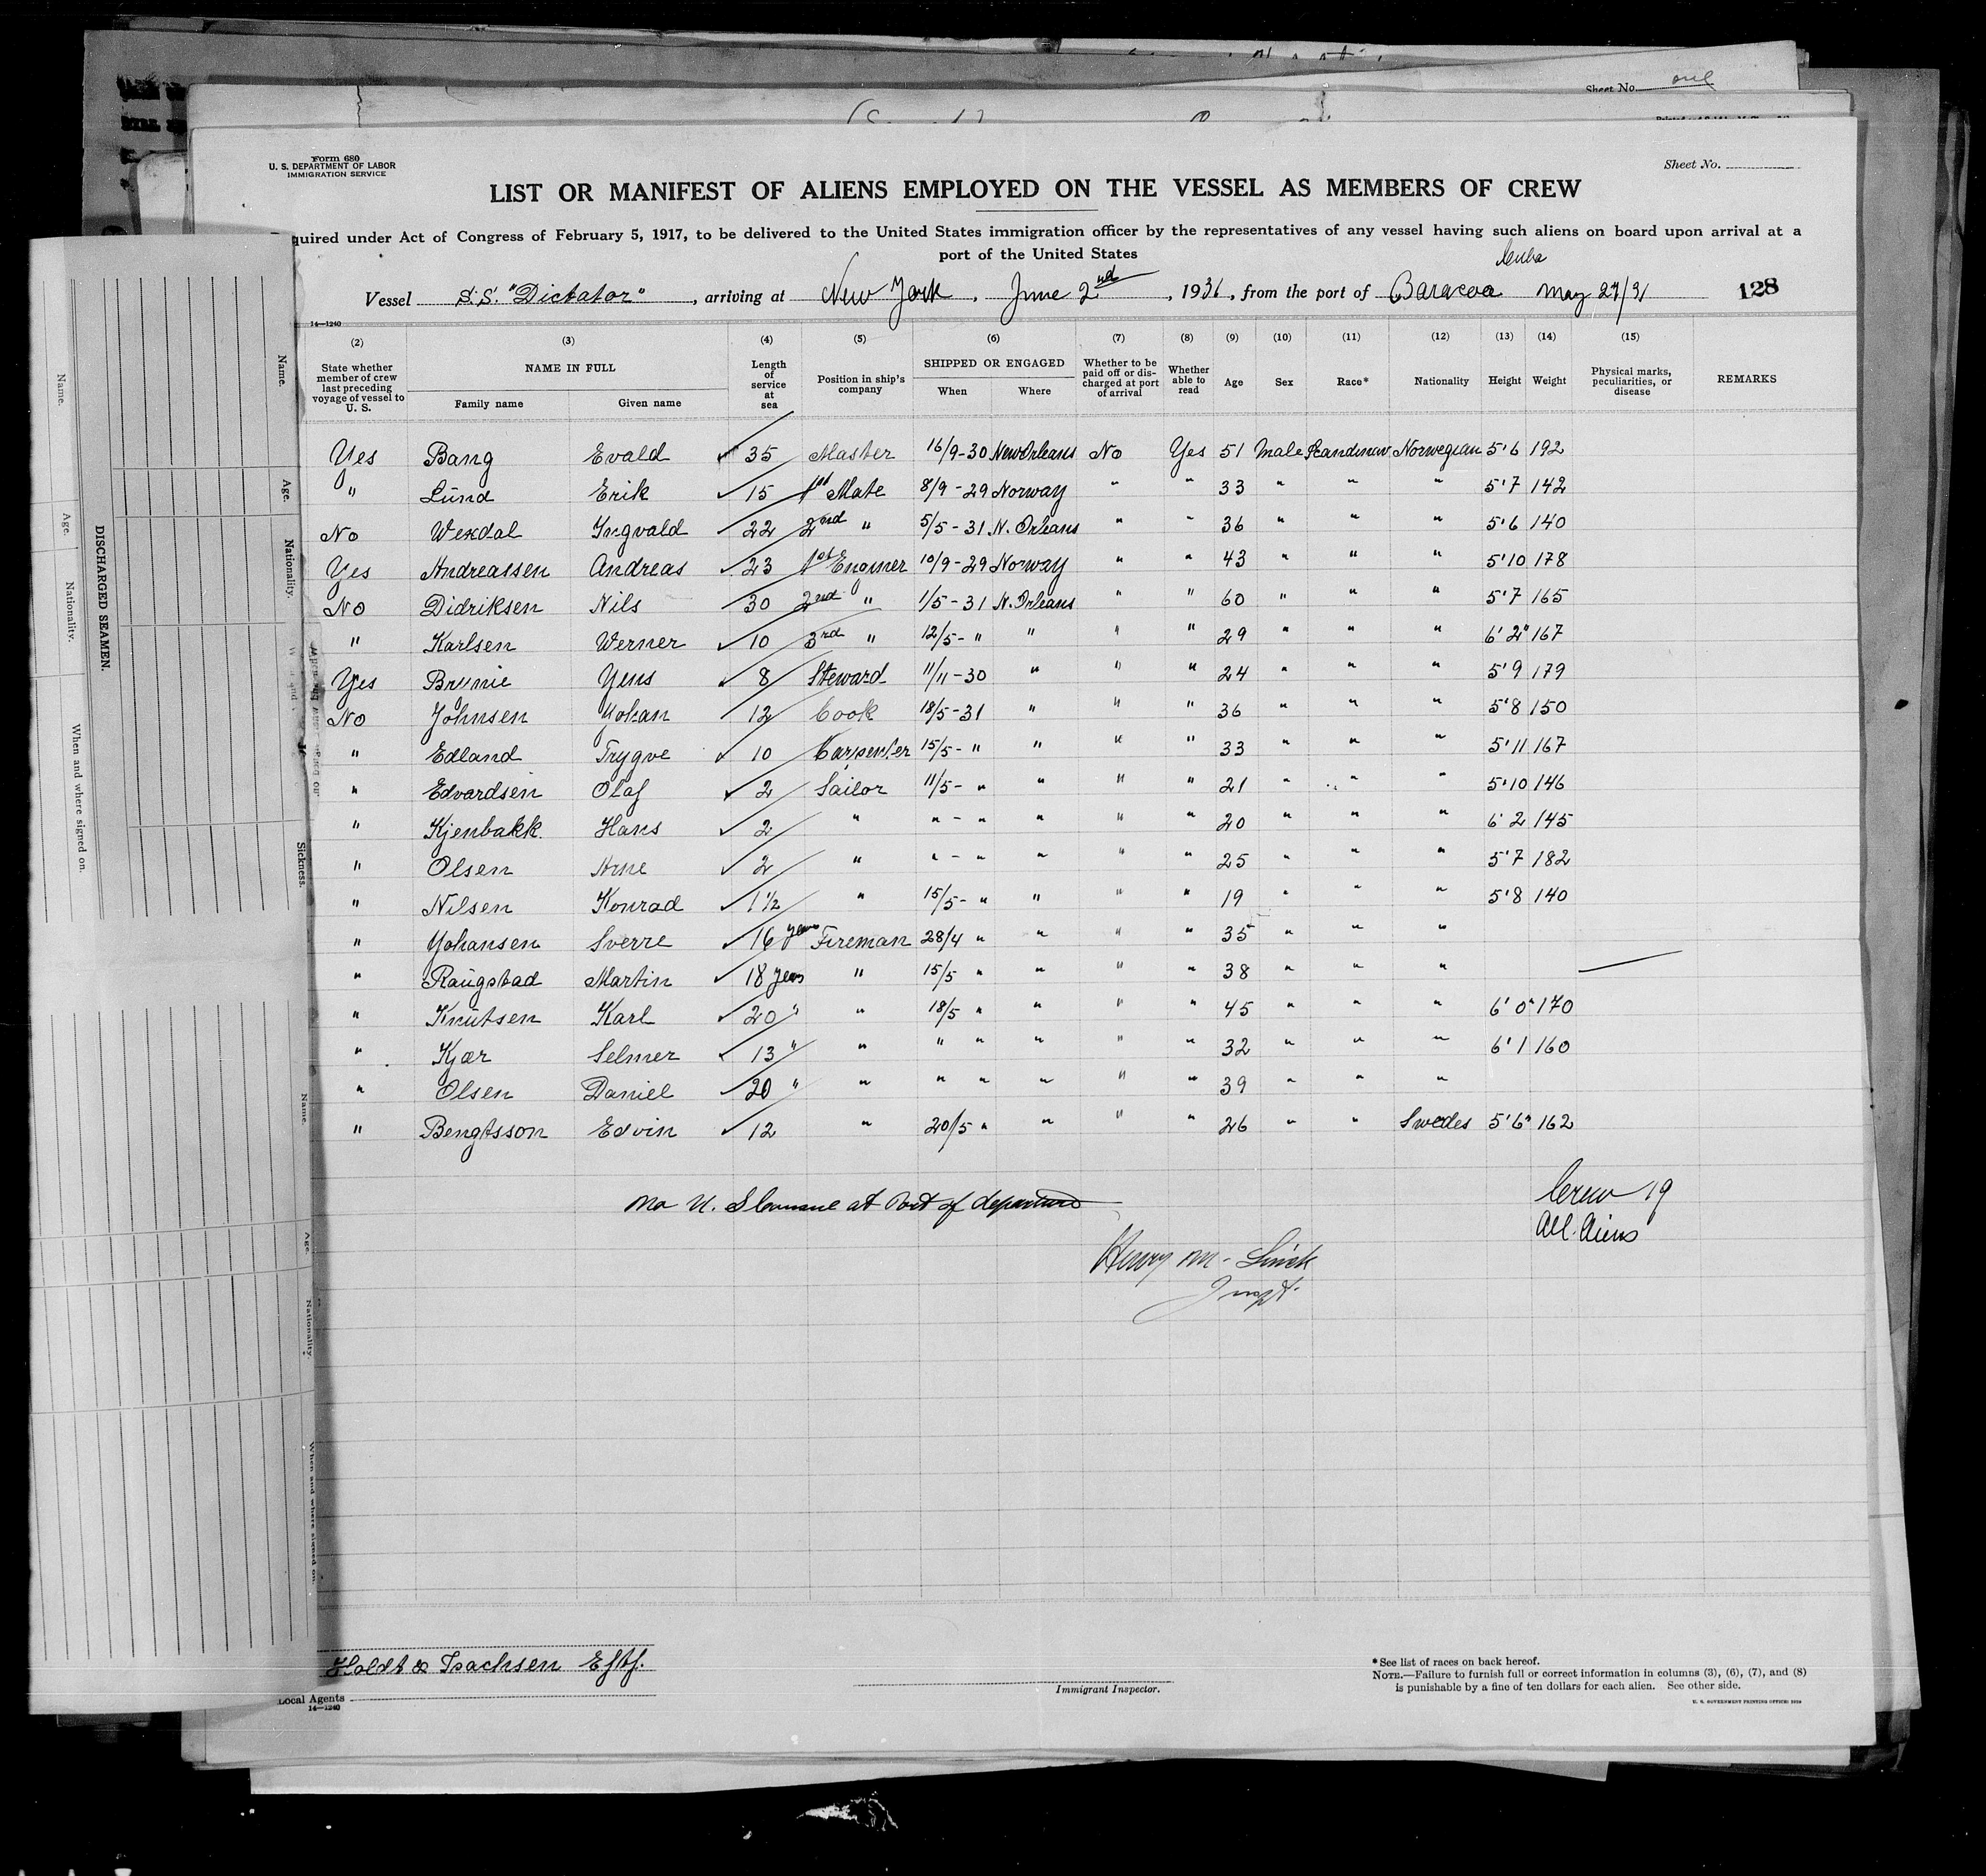 Sheet No. one
Form 680
U. S. DEPARTMENT OF LABOR
IMMIGRATION SERVICE
Sheet No.
LIST OR MANIFEST OF ALIENS EMPLOYED ON THE VESSEL AS MEMBERS OF CREW
quired under Act of Congress of February 5, 1917, to be delivered to the United States immigration officer by the representatives of any vessel having such aliens on board upon arrival at a
port of the United States
Cuba
Vessel S.S. "Dictator", arriving at New York, June 2nd, 1931, from the port of Baracoa May 27/31 128
14—1240
(2) (3) (4) (5) (6) (7) (8) (9) (10) (11) (12) (13) (14) (15)
State whether member of crew last preceding voyage of vessel to U. S. NAME IN FULL Family name Given name Length of service at sea Position in ship's company SHIPPED OR ENGAGED When Where Whether to be paid off or discharged at port of arrival Whether able to read Age Sex Race* Nationality Height Weight Physical marks, peculiarities, or disease REMARKS
Yes Bang Evald 35 Master 16/9-30 New Orleans No Yes 51 Male Scandinav Norwegian 5'6 192
" Lund Erik 15 1st Mate 8/9-29 Norway " " 33 " " " 5'7 142
No Wexdal Ingvald 22 2nd " 5/5-31 N. Orleans " " 36 " " " 5'6 140
Yes Andreassen Andreas 23 1st Enginer 10/9-29 Norway " " 43 " " " 5'10 178
No Didriksen Nils 30 2nd " 1/5-31 N. Orleans " " 60 " " " 5'7 165
" Karlsen Werner 10 3rd " 12/5-" " " " 29 " " " 6'2" 167
Yes Yens 8 Steward 11/11-30 " " " 24 " " " 5'9 179
No Johnsen Johan 12 Cook 18/5-31 " " " 36 " " " 5'8 150
" Edland Trygve 10 Carpenter 15/5-" " " " 33 " " " 5'11 167
" Edvardsen Olaf 2 Sailor 11/5-" " " " 21 " " " 5'10 146
" Kjenbakk. Hans 2 " "-" " " " 20 " " " 6'2 145
" Olsen Arne 2 " "-" " " " 25 " " " 5'7 182
" Nilsen Konrad 1½ " 15/5-" " " " 19 " " " 5'8 140
" Yohansen Sverre 16 years Fireman 28/4 " " " " 35 " " "
" Raugstad Martin 18 years " 15/5 " " " " 38 " " "
" Knutsen Karl 20 " " 18/5 " " " " 45 " " " 6'0" 170
" Kjær Selmer 13 " " " " " " " 32 " " " 6'1 160
" Olsen Daniel 20 " " " " " " " 39 " " "
" Bengtsson Edvin 12 " 20/5 " " " " 26 " " Swedes 5'6" 162
No U. S Consul at Port of departure
Crew 19
All. Aliens
Henry M.
Inspt.
Holdt & Isachsen Eftf.
Local Agents
14—1240
Immigrant Inspector.
*See list of races on back hereof.
NOTE.—Failure to furnish full or correct information in columns (3), (6), (7), and (8)
is punishable by a fine of ten dollars for each alien. See other side.
U. S. GOVERNMENT PRINTING OFFICE:
DISCHARGED SEAMEN.
Name. Age. Nationality. When and where signed on.
Name. Age. Nationality. Sickness.
Name. Age. Nationality When and where signed on.